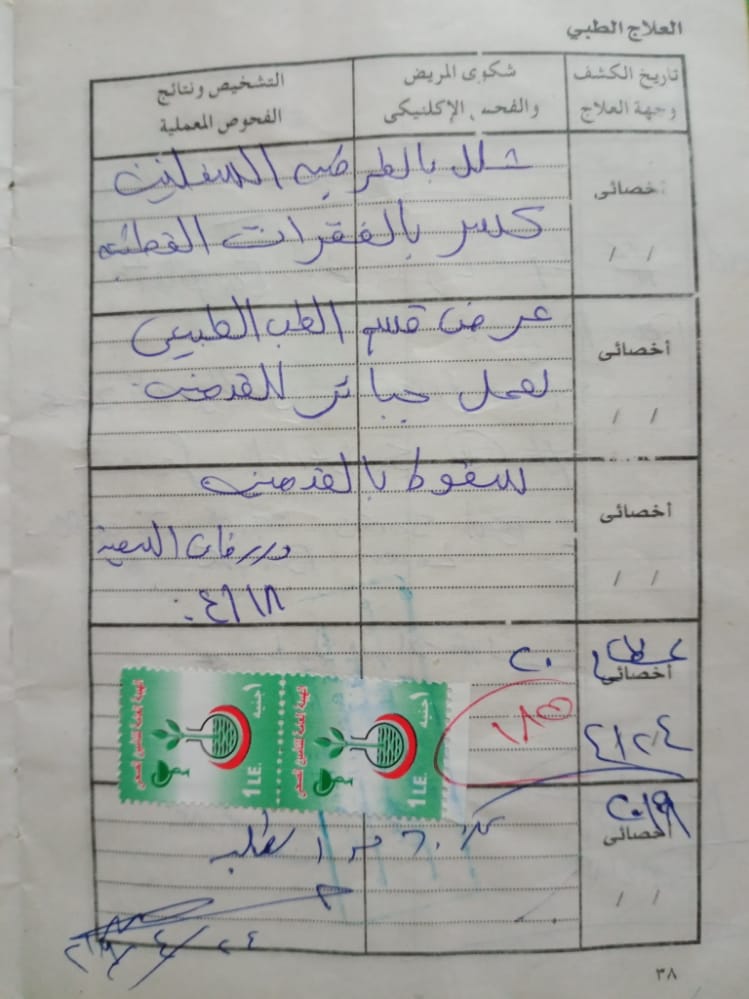 العلاج الطبي
تاريخ الكشف وجهة العلاج
شكوى المريض والفحص الإكلنيكى
التشخيص ونتائج الفحوص المعملية
أخصائى
/ /
شلل بالطرفين السفليين
كسر بالفقرات القطنية
أخصائى
/ /
عرض قسم الطب الطبيعى
لعمل جبائر للقدمين
أخصائى
/ /
سقوط بالقدمين
٤/١٨
أخصائى
٢٠
١٨٥
٤/٢٤
٢٠١٩
الهيئة العامة للتأمين الصحى
١ جنيه
1 L.E.
الهيئة العامة للتأمين الصحى
١ جنيه
1 L.E.
أخصائى
/ /
٢٤/٤/٢٠١٩
٣٨